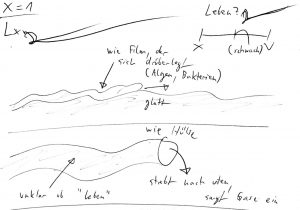 X = 1
Lx
Leben?
X
(schwach)
V
wie Film, der
sich drüberlegt
(Algen, Bakterien)
glatt
wie Hülse
unklar ob "Leben"
stabt nach unten,
saugt Gase ein